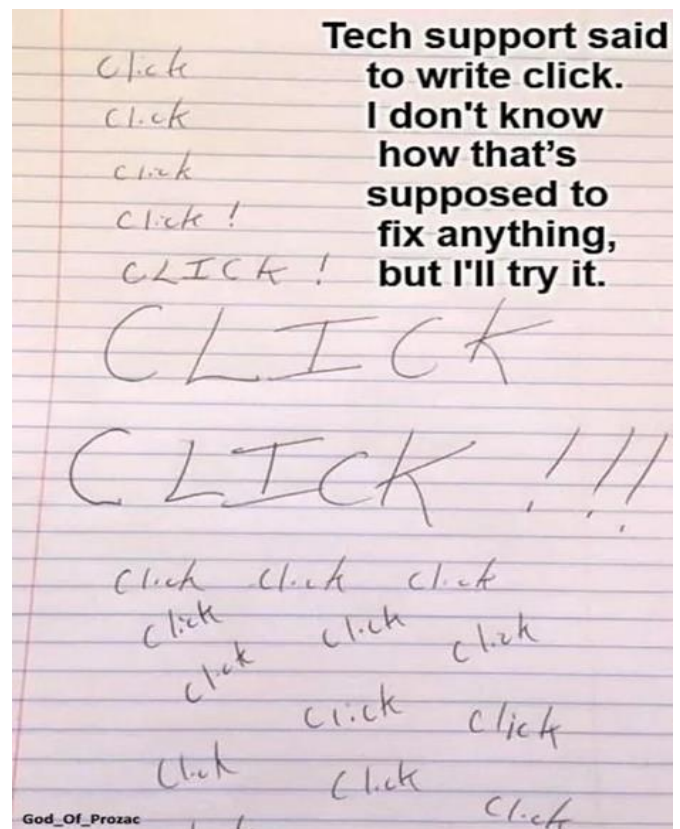 Tech support said
to write click.
I don't know
how that’s
supposed to
fix anything,
but I'll try it.
Click
Click
click
Click !
CLICK !
CLICK
CLICK !!!
Click Click Click
Click Click Click
Click
Click Click
Click Click
Click
God_Of_Prozac